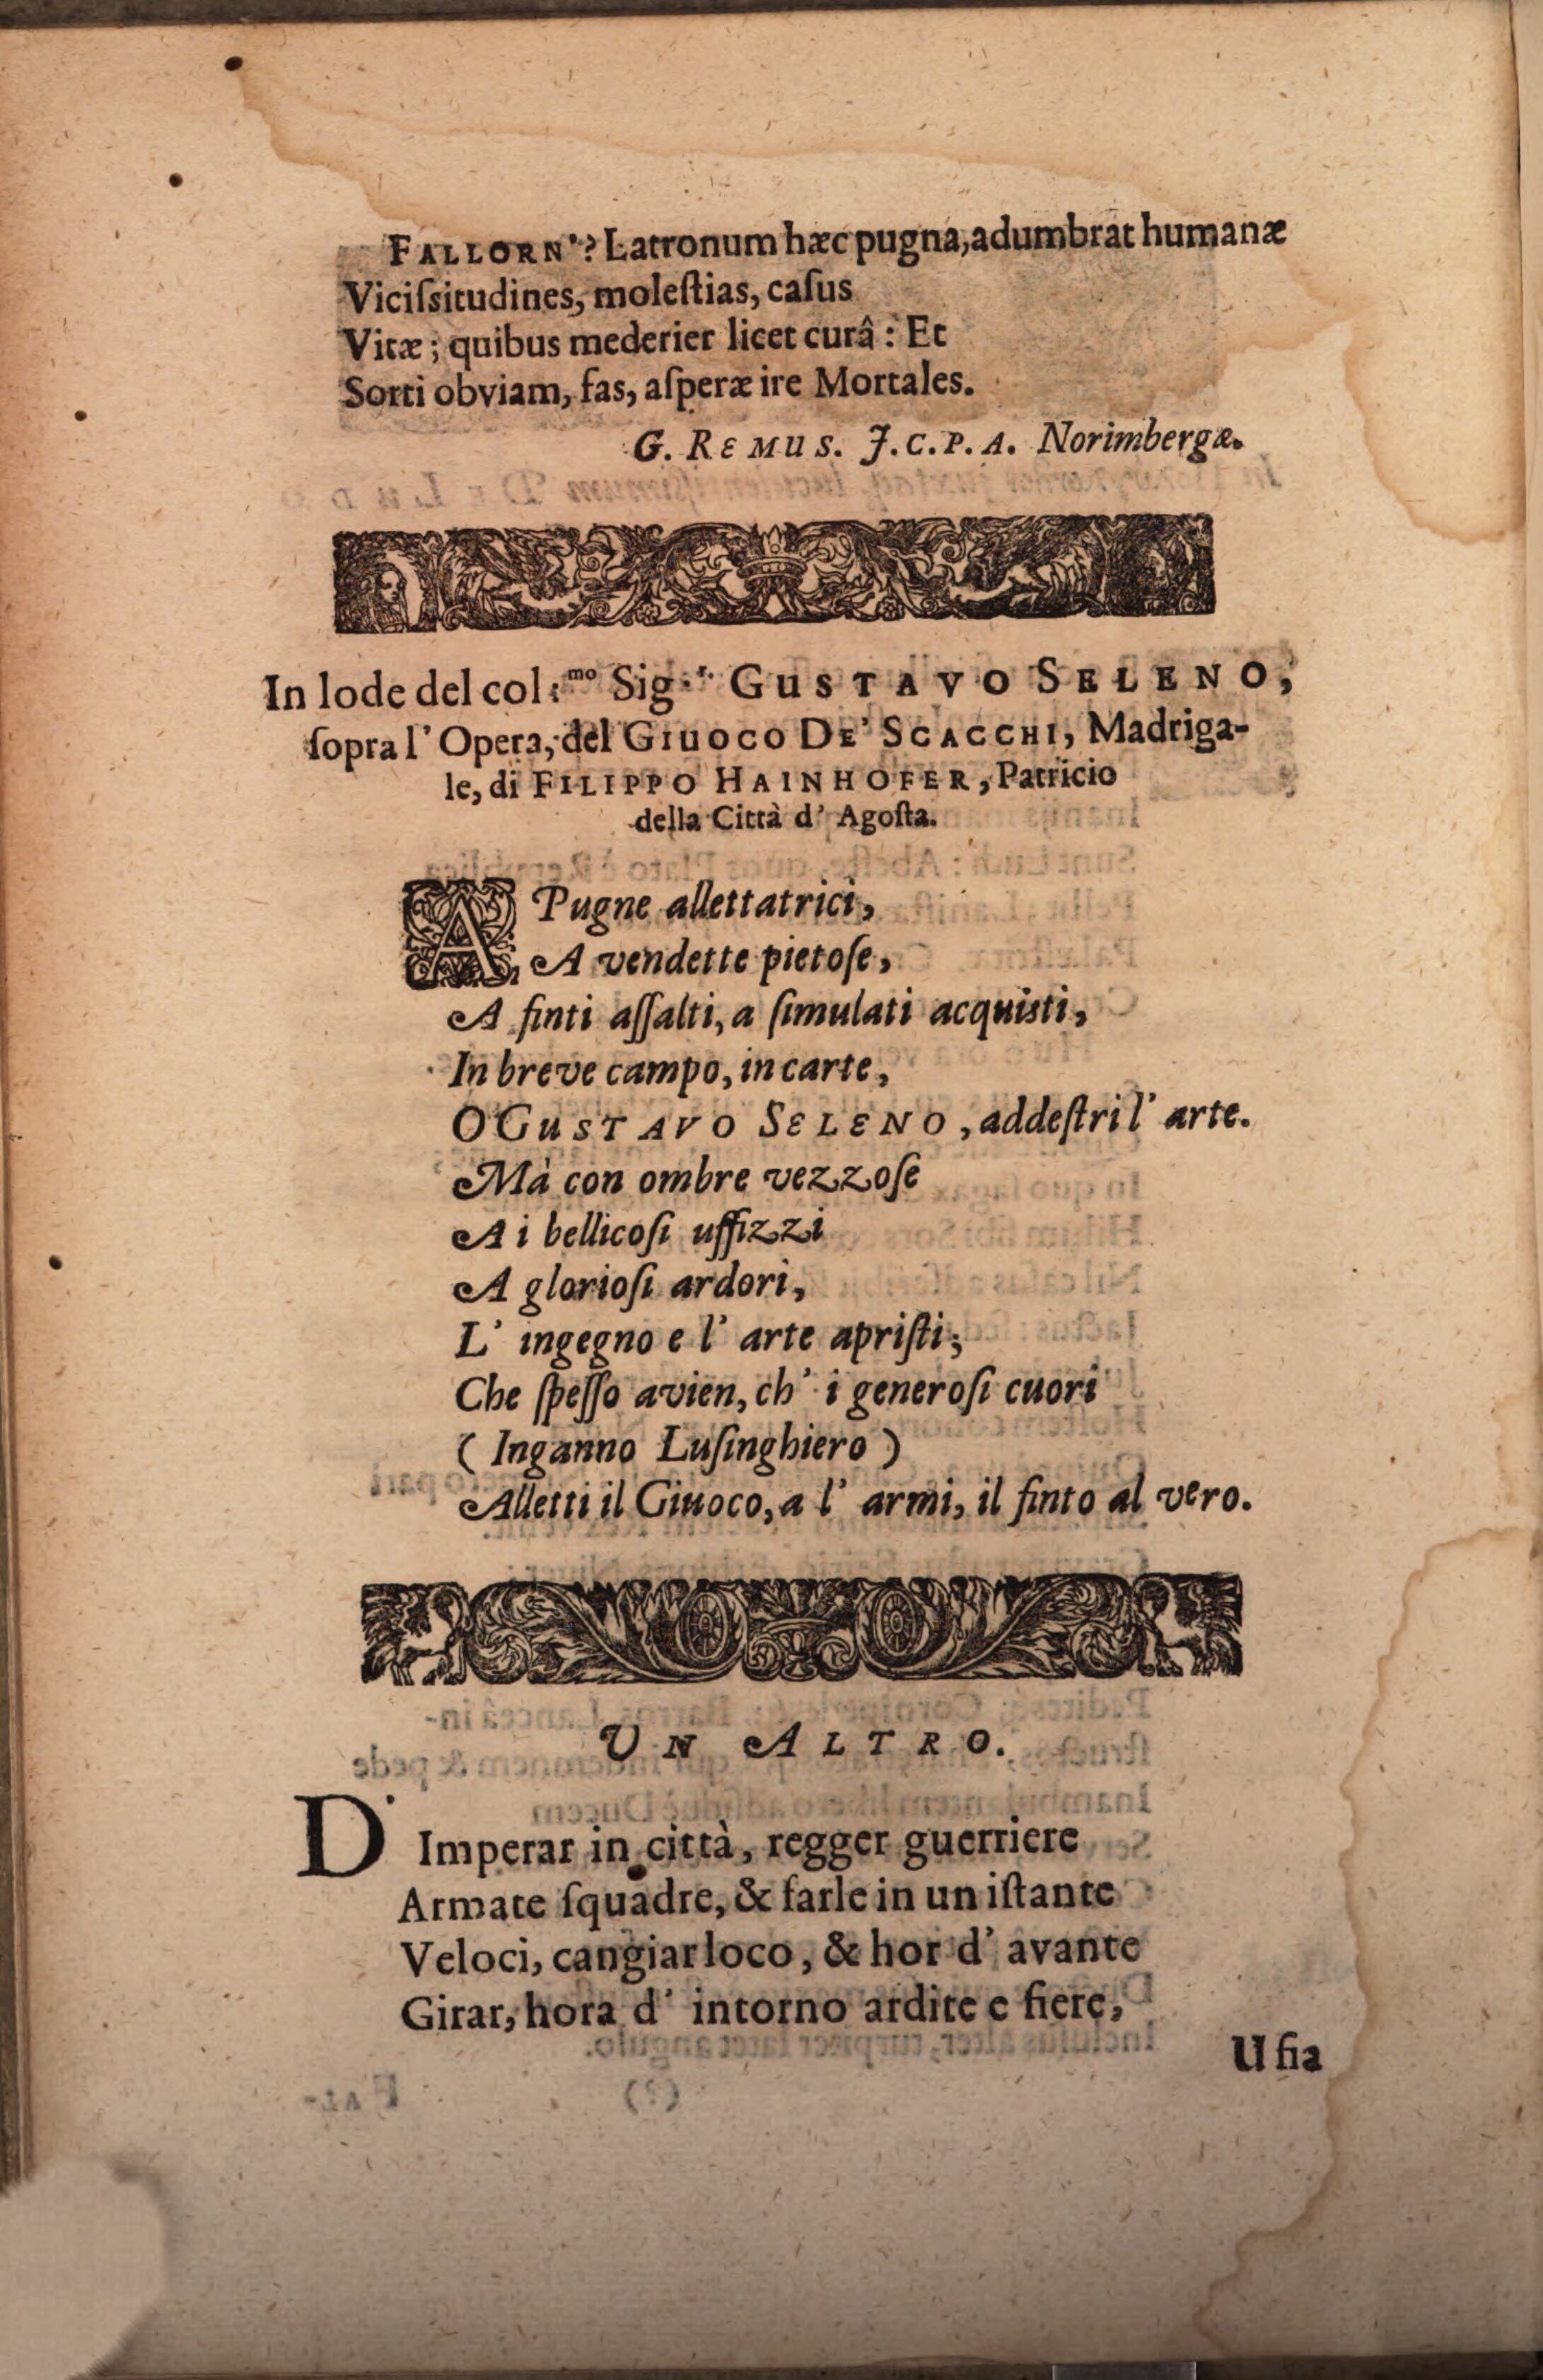 FALLORN'? Latronum hæc pugna, adumbrat humanæ
Viciſsitudines, moleſtias, caſus
Vitæ; quibus mederier licet curâ: Et
Sorti obviam, fas, aſperæ ire Mortales.
G. REMUS. J.C.P.A. Norimbergæ.
In lode del col:mo Sig.r. GUSTAVO SELENO,
ſopra l' Opera, del GIUOCO DE' SCACCHI, Madriga-
le, di FILIPPO HAINHOFER, Patricio
della Città d' Agoſta.
A Pugne allettatrici,
A vendette pietoſe,
A finti aſſalti, a ſimulati acquisti,
In breve campo, in carte,
O GUSTAVO SELENO, addeſtri l' arte.
Mà con ombre vezzoſe
A i bellicoſi uffizzi
A glorioſi ardori,
L' ingegno e l' arte apriſti;
Che ſpeſſo avien, ch' i generoſi cuori
( Inganno Luſinghiero )
Alletti il Giuoco, a l' armi, il finto al vero.
UN ALTRO.
D' Imperar in città, regger guerriere
Armate ſquadre, & farle in un iſtante
Veloci, cangiar loco, & hor d' avante
Girar, hora d' intorno ardite e fiere,
U ſia